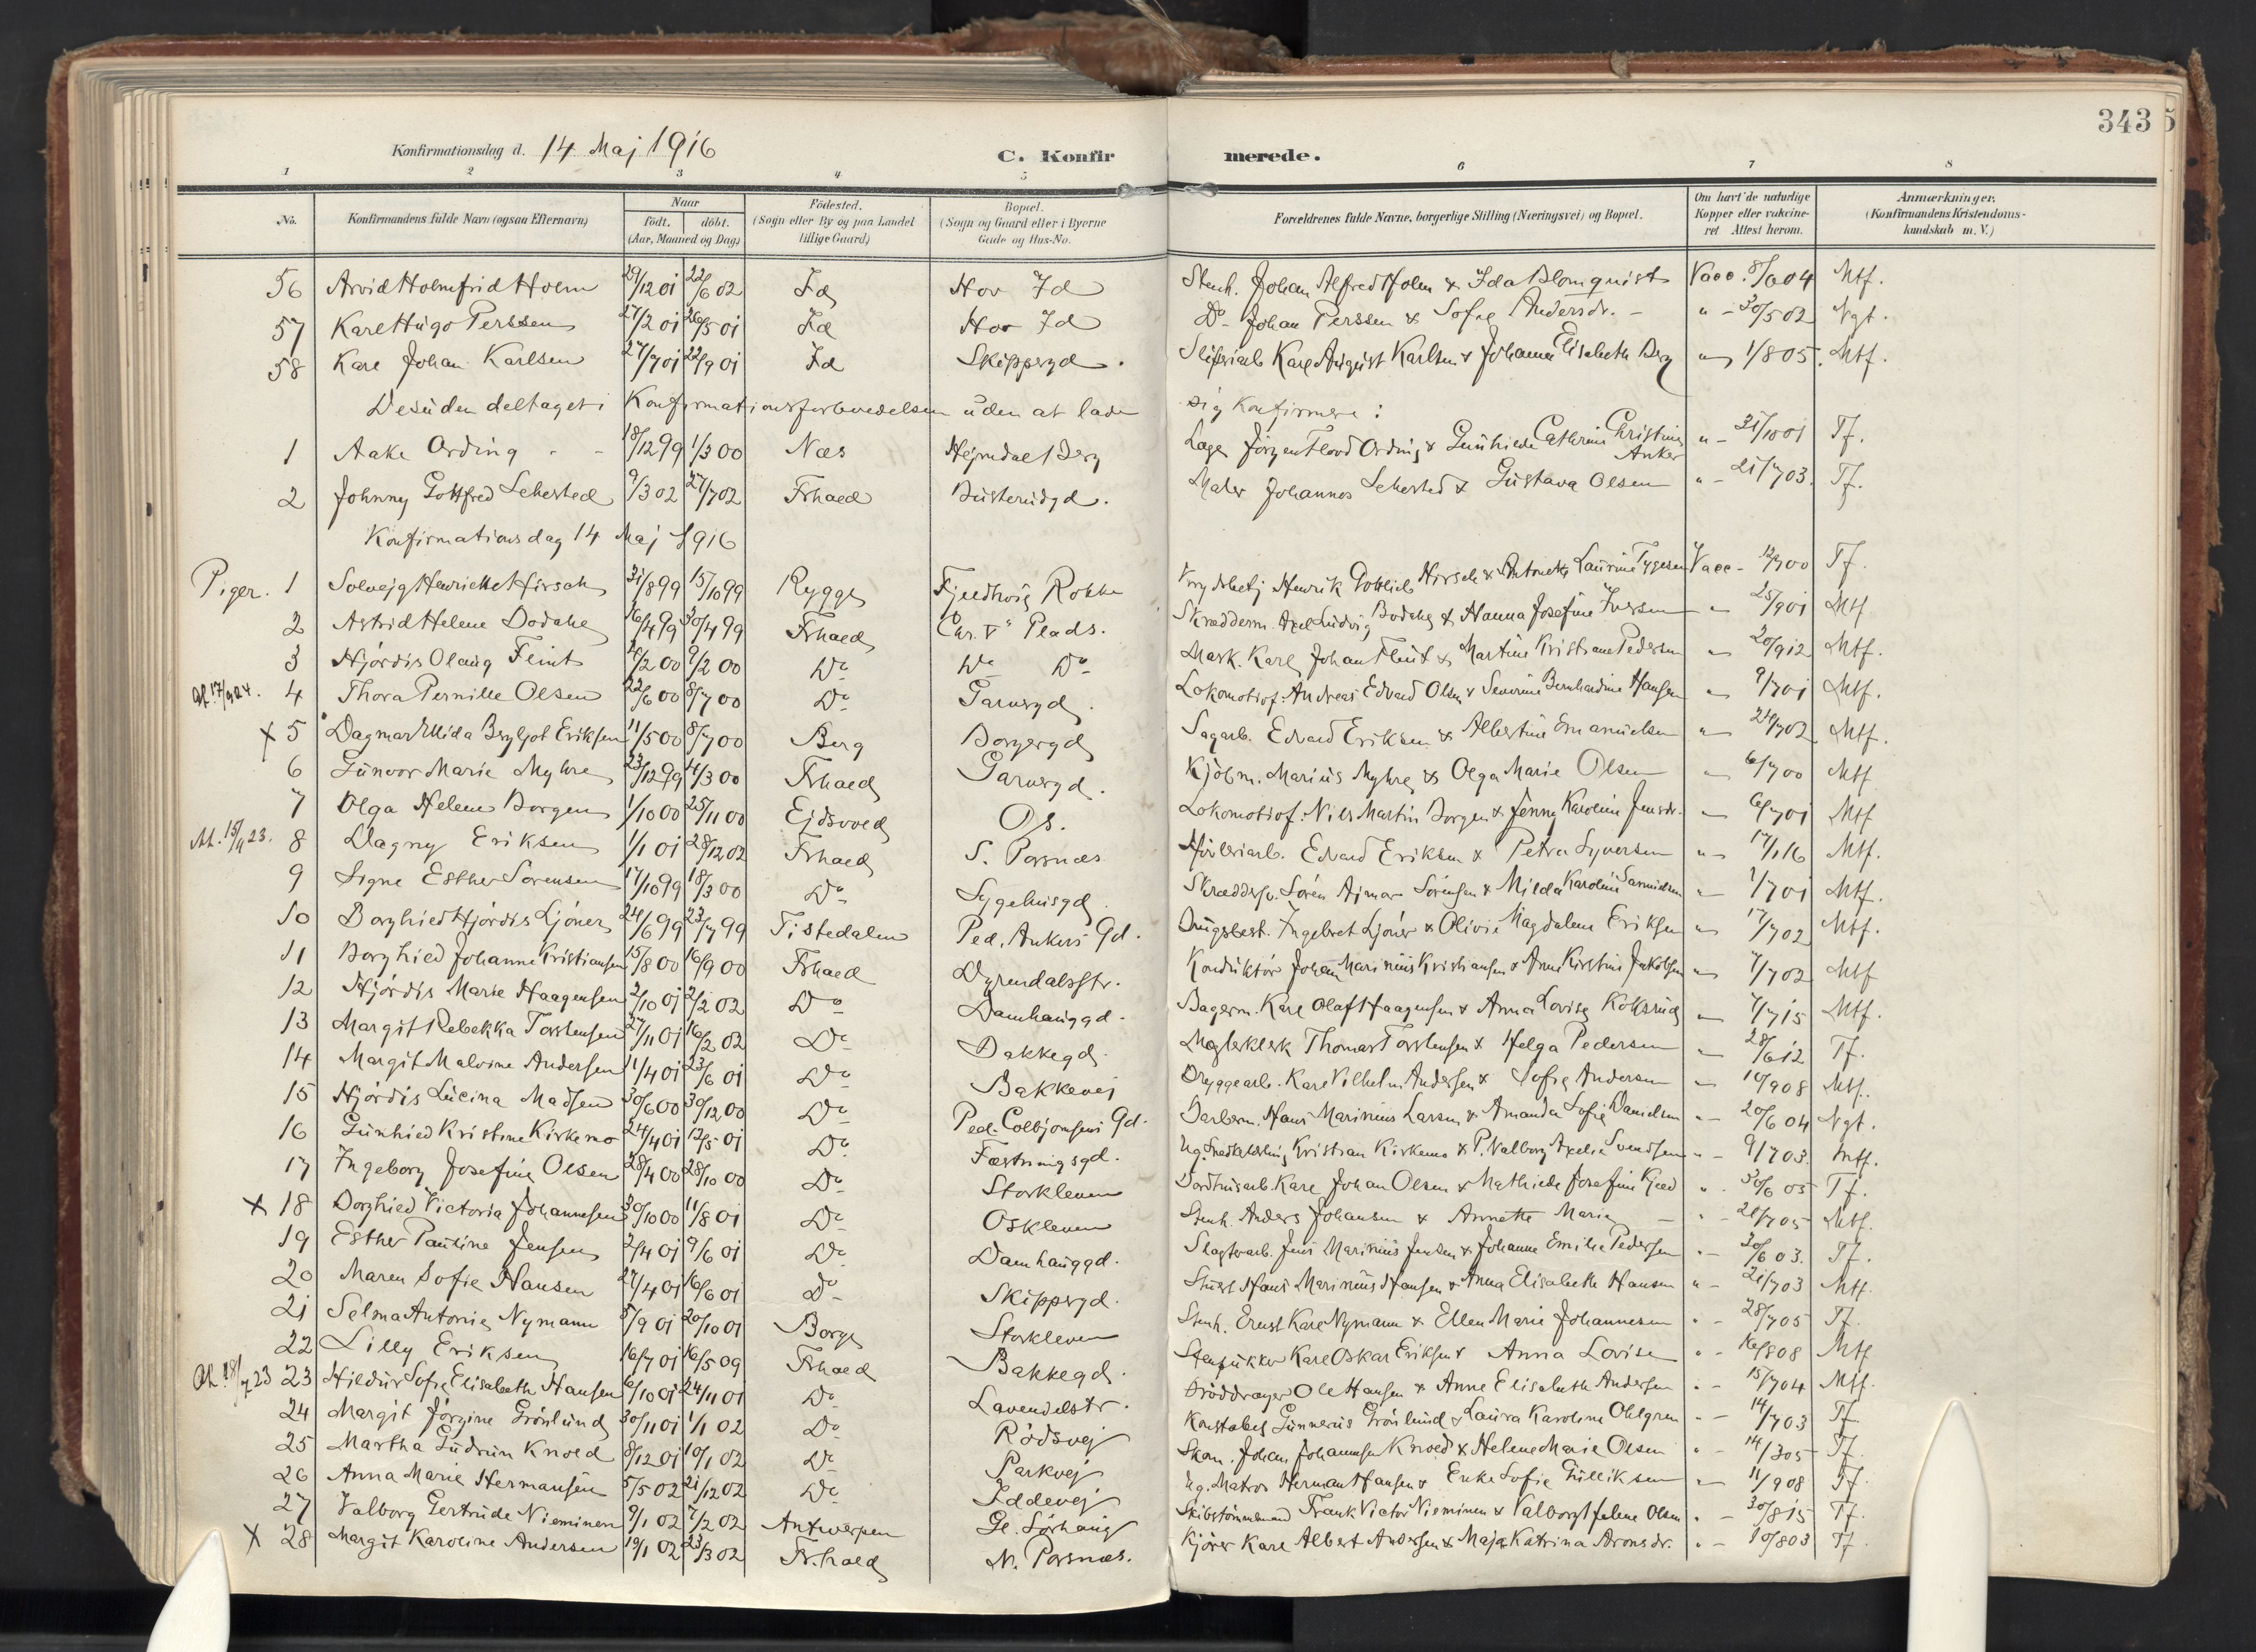 343
Konfirmationsdag d. 14 Maj 1916
C. Konfirmerede.
1 2 3 4 5 6 7 8
No. Konfirmandens fulde Navn (ogsaa Efternavn) Naar födt. döbt. (Aar, Maaned og Dag) Födested. (Sogn eller By og paa Landet tillige Gaard) Bopæl. (Sogn og Gaard eller i Byerne Gade og Hus-No. Forældrenes fulde Navne, borgerlige Stilling (Næringsvei) og Bopæl. Om havt de naturlige Kopper eller vakcineret Attest herom. Anmærkninger. (Konfirmandens Kristendomskundskab m. V.)
56 Arvid Holmfrid Holm 29/12 01 22/6 02 Id Hov Id Stenh. Johan Alfred Holm & Ida Blomquist Vacc. 8/6 04 Mtf.
57 Karl Hugo Perssen 27/2 01 26/5 01 Id Hov Id Do - Johan Perssen & Sofie Andersdr. - " - 30/5 02 Ngt.
58 Karl Johan Karlsen 27/7 01 22/9 01 Id Skippergd. Sliperiarb Karl August Karlsen & Johanne Elisabeth Berg " 1/8 05. Mtf.
Desuden deltaget i Konfirmationsforberedelsen uden at lade sig konfirmere:
1 Aake Ording - - 18/12 99 1/3 00 Næs Hejmdal Berg Læge Jörgen Flood Ording & Gunhilde Cathrine Christine Anker " - 31/10 01 Tf.
2 Johnny Gottfred Sehested 9/3 02 27/7 02 Frhald Busterudgd. Maler Johannes Sehested & Gustava Olsen " - 21/7 03. Tf.
Konfirmationsdag 14 Maj 1916
Piger. 1 Solvejg Henriette Hirsch 31/8 99 15/10 99 Rygge Fjeldhöig Rokke Henrik Gottlieb Hirsch & Antonette Laurine Tygesen Vacc - 12/7 00 Tf.
2 Astrid Helene Bodahl 16/4 99 30/4 99 Frhald Chr. V" Plads. Skrædderm. Axel Ludvig Bodahl & Hanna Josefine Iversen " 25/9 01 Mtf
3 Hjördis Olaug Flint 4/2 00 9/2 00 Do Do Do Mask. Karl Johan Flint & Martine Kristiane Pedersen " 20/9 12 Mtf.
17/9 24. 4 Thora Pernille Olsen 22/6 00 8/7 00 Do Garvergd. Lokomotivf. Andreas Edvard Olsen & Severine Bernhardine Hansen " 9/7 01 Mtf.
x 5 Dagmar Elida Bergljot Eriksen 11/5 00 8/7 00 Berg Borgergd Sagarb. Edvard Eriksen & Albertine Emanuelsen " 24/7 02 Mtf.
6 Gunvor Marie Myhre 23/12 99 4/3 00 Frhald Garvergd. Kjöbm. Marius Myhre & Olga Marie Olsen " 6/7 00 Mtf
7 Olga Helene Borgen 1/10 00 25/11 00 Ejdsvold Os. Lokomotivf. Nils Martin Borgen & Jenny Karoline Jensdr. " 6/7 01 Mtf
15/11 23. 8 Dagny Eriksen 1/1 01 28/12 02 Frhald S. Porsnæs Hövleriarb. Edvard Eriksen & Petra Syversen " 17/1 16 Mtf.
9 Signe Esther Sorensen 17/10 99 18/3 00 Do Sygehusgd. Skræddersv. Sorén Ajmar Sörensen & Milda Karoline Samuelsen " 1/7 01 Mtf.
10 Borghild Hjördis Ljöner 24/6 99 23/7 99 Tistedalen Ped. Ankers Gd. Brugsbest. Ingebret Ljöner & Olivie Magdalene Eriksen " 17/7 02 Mtf.
11 Borghild Johanne Kristiansen 15/8 00 16/9 00 Frhald Dyrendalsstr. Konduktör Johan Marinius Kristiansen & Anne Kirstine Jakobsen " 7/7 02 Mtf
12 Hjördis Marie Haagensen 2/10 01 2/2 02 Do Damhauggd. Bagerm. Karl Olaf Haagensen & Anna Lovise Koksrud " 7/7 15 Mtf.
13 Margit Rebekka Torstensen 27/11 01 16/2 02 Do Bakkegd. Mæglerklerk Thomas Torstensen & Helga Pedersen " 28/6 12 Tf.
14 Margit Malvine Andersen 11/4 01 23/6 01 Do Bakkevej Bryggearb. Karl Vilhelm Andersen & Sofie Andersen " 10/9 08 Mtf.
15 Hjördis Lucina Madsen 30/6 00 30/12 00 Do Ped. Colbjornsens Gd. Barberm. Hans Marinius Larsen & Amanda Sofie Danielsen " 20/6 04 Ngt.
16 Gunhild Kristine Kirkemo 24/4 01 12/5 01 Do Fæstningsgd. Kristian Kirkemo & P. Valborg Axelia Svendsen " - 9/7 03. Mtf.
17 Ingeborg Josefine Olsen 28/4 00 28/10 00 Do Storkleven Bordhusarb. Karl Johan Olsen & Mathilde Josefine Kjeld " - 30/6 05 Tf.
x 18 Borghild Victoria Johannesen 30/10 00 11/8 01 Do Oskleven Stenh. Anders Johansen & Annette Marie - " - 21/7 05 Mtf.
19 Esther Pauline Jensen 2/4 01 9/6 01 Do Damhauggd. Slagterarb. Jens Marinius Jensen & Johanne Emilie Pedersen " - 30/6 03. Tf.
20 Maren Sofie Hansen 27/4 01 16/6 01 Do Skippergd. Stuert Hans Marinius Hansen & Anna Elisabeth Hansen " - 21/7 03 Mtf.
21 Selma Antonie Nymann 5/9 01 20/10 01 Borge Storkleven Stenh. Ernst Karl Nymann & Ellen Marie Johannesen " - 28/7 05 Tf.
22 Lilly Eriksen 16/7 01 16/5 09 Frhald Bakkegd. Karl Oskar Eriksen & Anna Lovise " - 16/8 08 Mtf
18/7 23 23 Hildur Sofie Elisabeth Hansen 6/10 01 24/11 01 Do Lavendelstr. Bröddrager Ole Hansen & Anne Elisabeth Andersen " - 15/7 04 Mtf.
24 Margit Jörgine Grönlund 30/11 01 1/1 02 Do Rödsvej Konstabel Gunnerius Grönlund & Laura Karoline Ohlgren " - 14/7 03 Tf
25 Martha Gudrun Knold 8/12 01 10/1 02 Do Parkvej Skom. Johan Johannesen Knold & Helene Marie Olsen " - 14/3 05 Tf.
26 Anna Marie Hermansen 5/5 02 21/12 02 Do Iddevej Matros Herman Hansen & Enke Sofie Gulliksen " 11/9 08 Tf.
27 Valborg Gertrude Nieminen 9/1 02 7/2 02 Antwerpen Gl. Sörhaug Skibstömmermand Frank Victor Nieminen & Valborg Helene Olsen " - 30/8 15 Tf.
x 28 Margit Karoline Andersen 19/1 02 23/3 02 Fr.hald N. Porsnæs. Kjörer Karl Albert Andersen & Maja Katrina Aronsdr. " - 10/8 03 Tf.